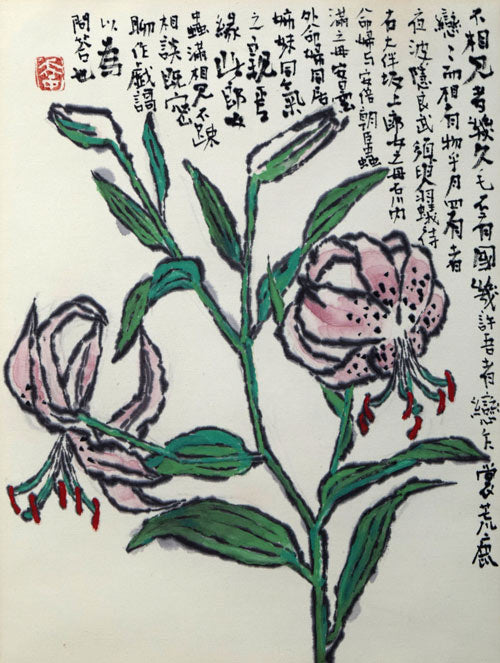 不相見者幾久毛不有國幾許吾者戀乍裳荒鹿
戀々而相有物乎月四有者
夜波隠良武須臾羽蟻待
右大伴坂上郎女之母石川内
命婦与安倍朝臣蟲
満之母安曇
外命婦同居
姉妹同氣
之親焉
縁此郎女
蟲滿相見不踈
相談既密
聊作戯謌
以為
問荅也